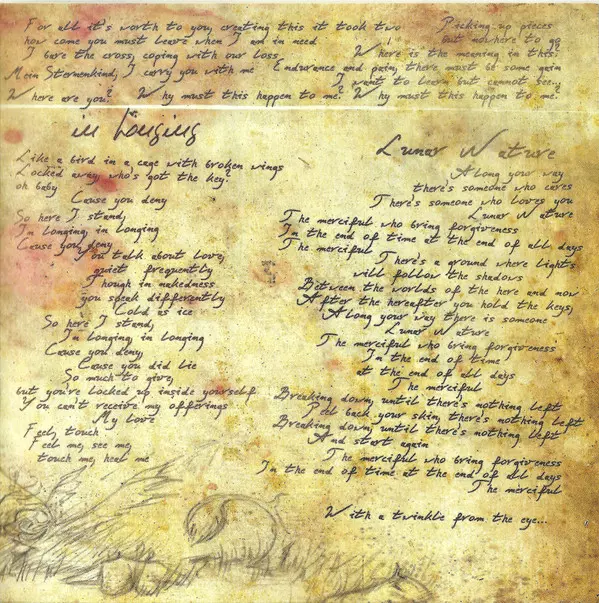 For all it's worth to you, creating this it took two
how come you must leave when I am in need
I bare the cross, coping with our loss
Mein Sternenkind, I carry you with me
Picking up pieces
but nowhere to go
Where is the meaning in this?
Endurance and pain, there must be some gain
I want to learn but cannot see...
Where are you? Why must this happen to me? Why must this happen to me?
in Longing
Like a bird in a cage with broken wings
Locked away, who's got the key?
oh baby
Cause you deny
So here I stand,
I'm longing, in longing
Cause you deny
You talk about love,
quiet frequently
Though in nakedness
you speak differently
Cold as ice
So here I stand,
I'm longing, in longing
Cause you deny
Cause you did lie
So much to give,
but you're locked up inside yourself
You can't receive my offerings
My love
Feel, touch
Feel me, see me,
touch me, heal me
Lunar Nature
Along your way
there's someone who cares
There's someone who loves you
Lunar Nature
The merciful who bring forgiveness
In the end of time at the end of all days
The merciful
There's a ground where lights
will follow the shadows
Between the worlds of the here and now
After the hereafter you hold the keys,
Along your way there is someone
Lunar Nature
The merciful who bring forgiveness
In the end of time
at the end of all days
The merciful
Breaking down, until there's nothing left
Peel back your skin, there's nothing left
Breaking down, until there's nothing left
And start again
The merciful who bring forgiveness
In the end of time at the end of all days
The merciful
With a twinkle from the eye...